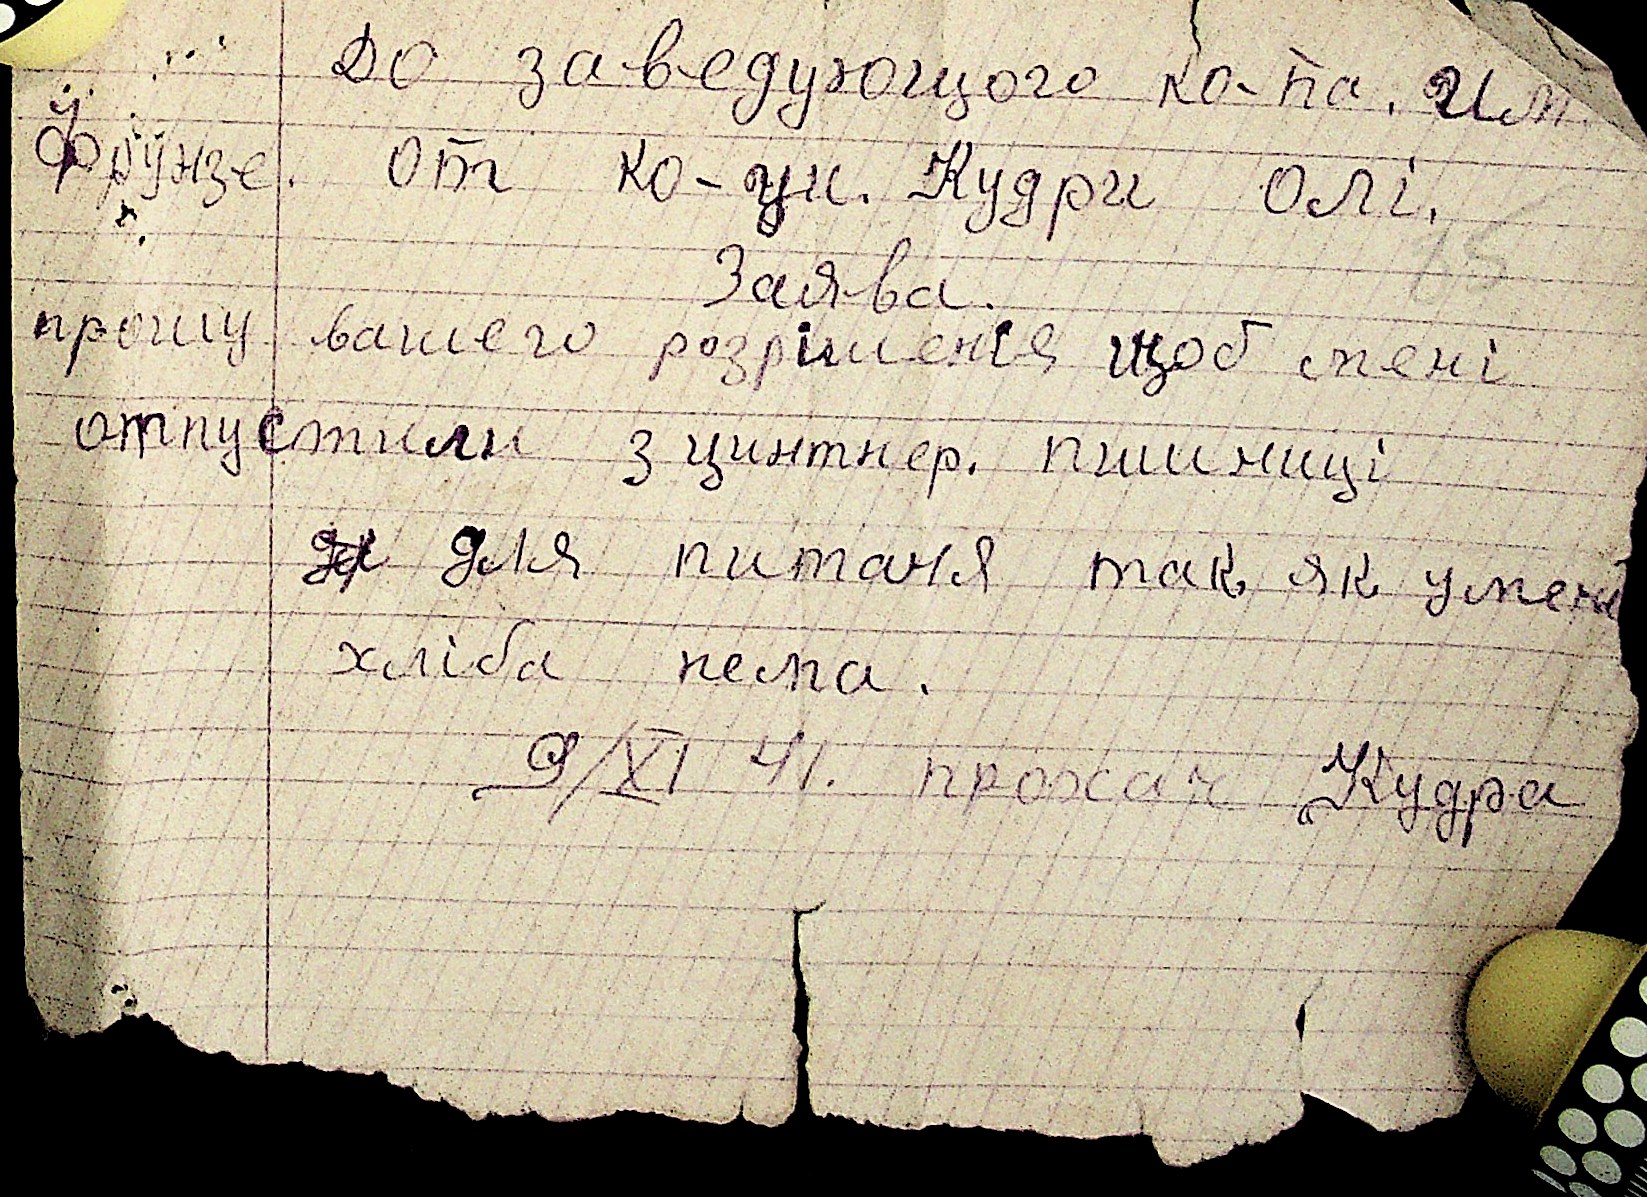 До заведующого ко-па. Им.
Фрунзе. от ко-ци. Кудри Олі.
Заява.
прошу вашего розрішенія щоб мені
отпустили 3 цинтнер. пшиниці
для питаня так як у мені
хліба нема.
9/XI 41. прохач Кудра